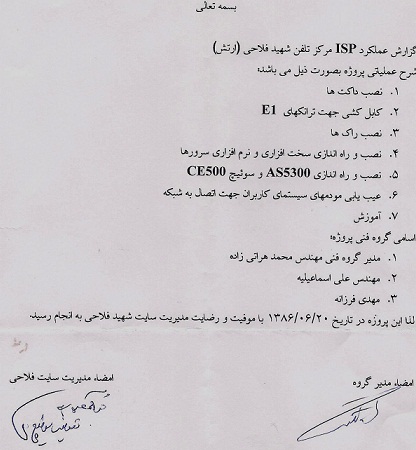 بسمه تعالی
گزارش عملکرد ISP مرکز تلفن شهید فلاحی (ارتش)
شرح عملیاتی پروژه بصورت ذیل می باشد:
۱. نصب داکت ها
۲. کابل کشی جهت ترانکهای E1
۳. نصب راک ها
۴. نصب و راه اندازی سخت افزاری و نرم افزاری سرورها
۵. نصب و راه اندازی AS5300 و سوئیچ CE500
۶. عیب یابی مودمهای سیستمای کاربران جهت اتصال به شبکه
۷. آموزش
اسامی گروه فنی پروژه:
۱. مدیر گروه فنی مهندس محمد هراتی زاده
۲. مهندس علی اسماعیلیه
۳. مهدی فرزانه
لذا این پروزه در تاریخ ۱۳۸۶/۰۶/۲۰ با موفیت و رضایت مدیریت سایت شهید فلاحی به انجام رسید.
امضاء مدیر گروه
امضاء مدیریت سایت فلاحی